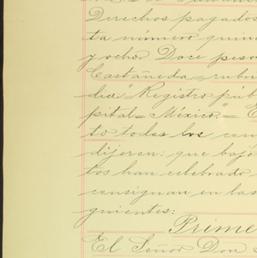 Derechos pagados
ta número quin
y ocho Doce pes
Castañeda rubri
dia" Registro púb
pital-México"- E
to todas las con
dijeron: que bajo
tos han celebrado
consignan en las
guientes:
Prime
El Señor Don